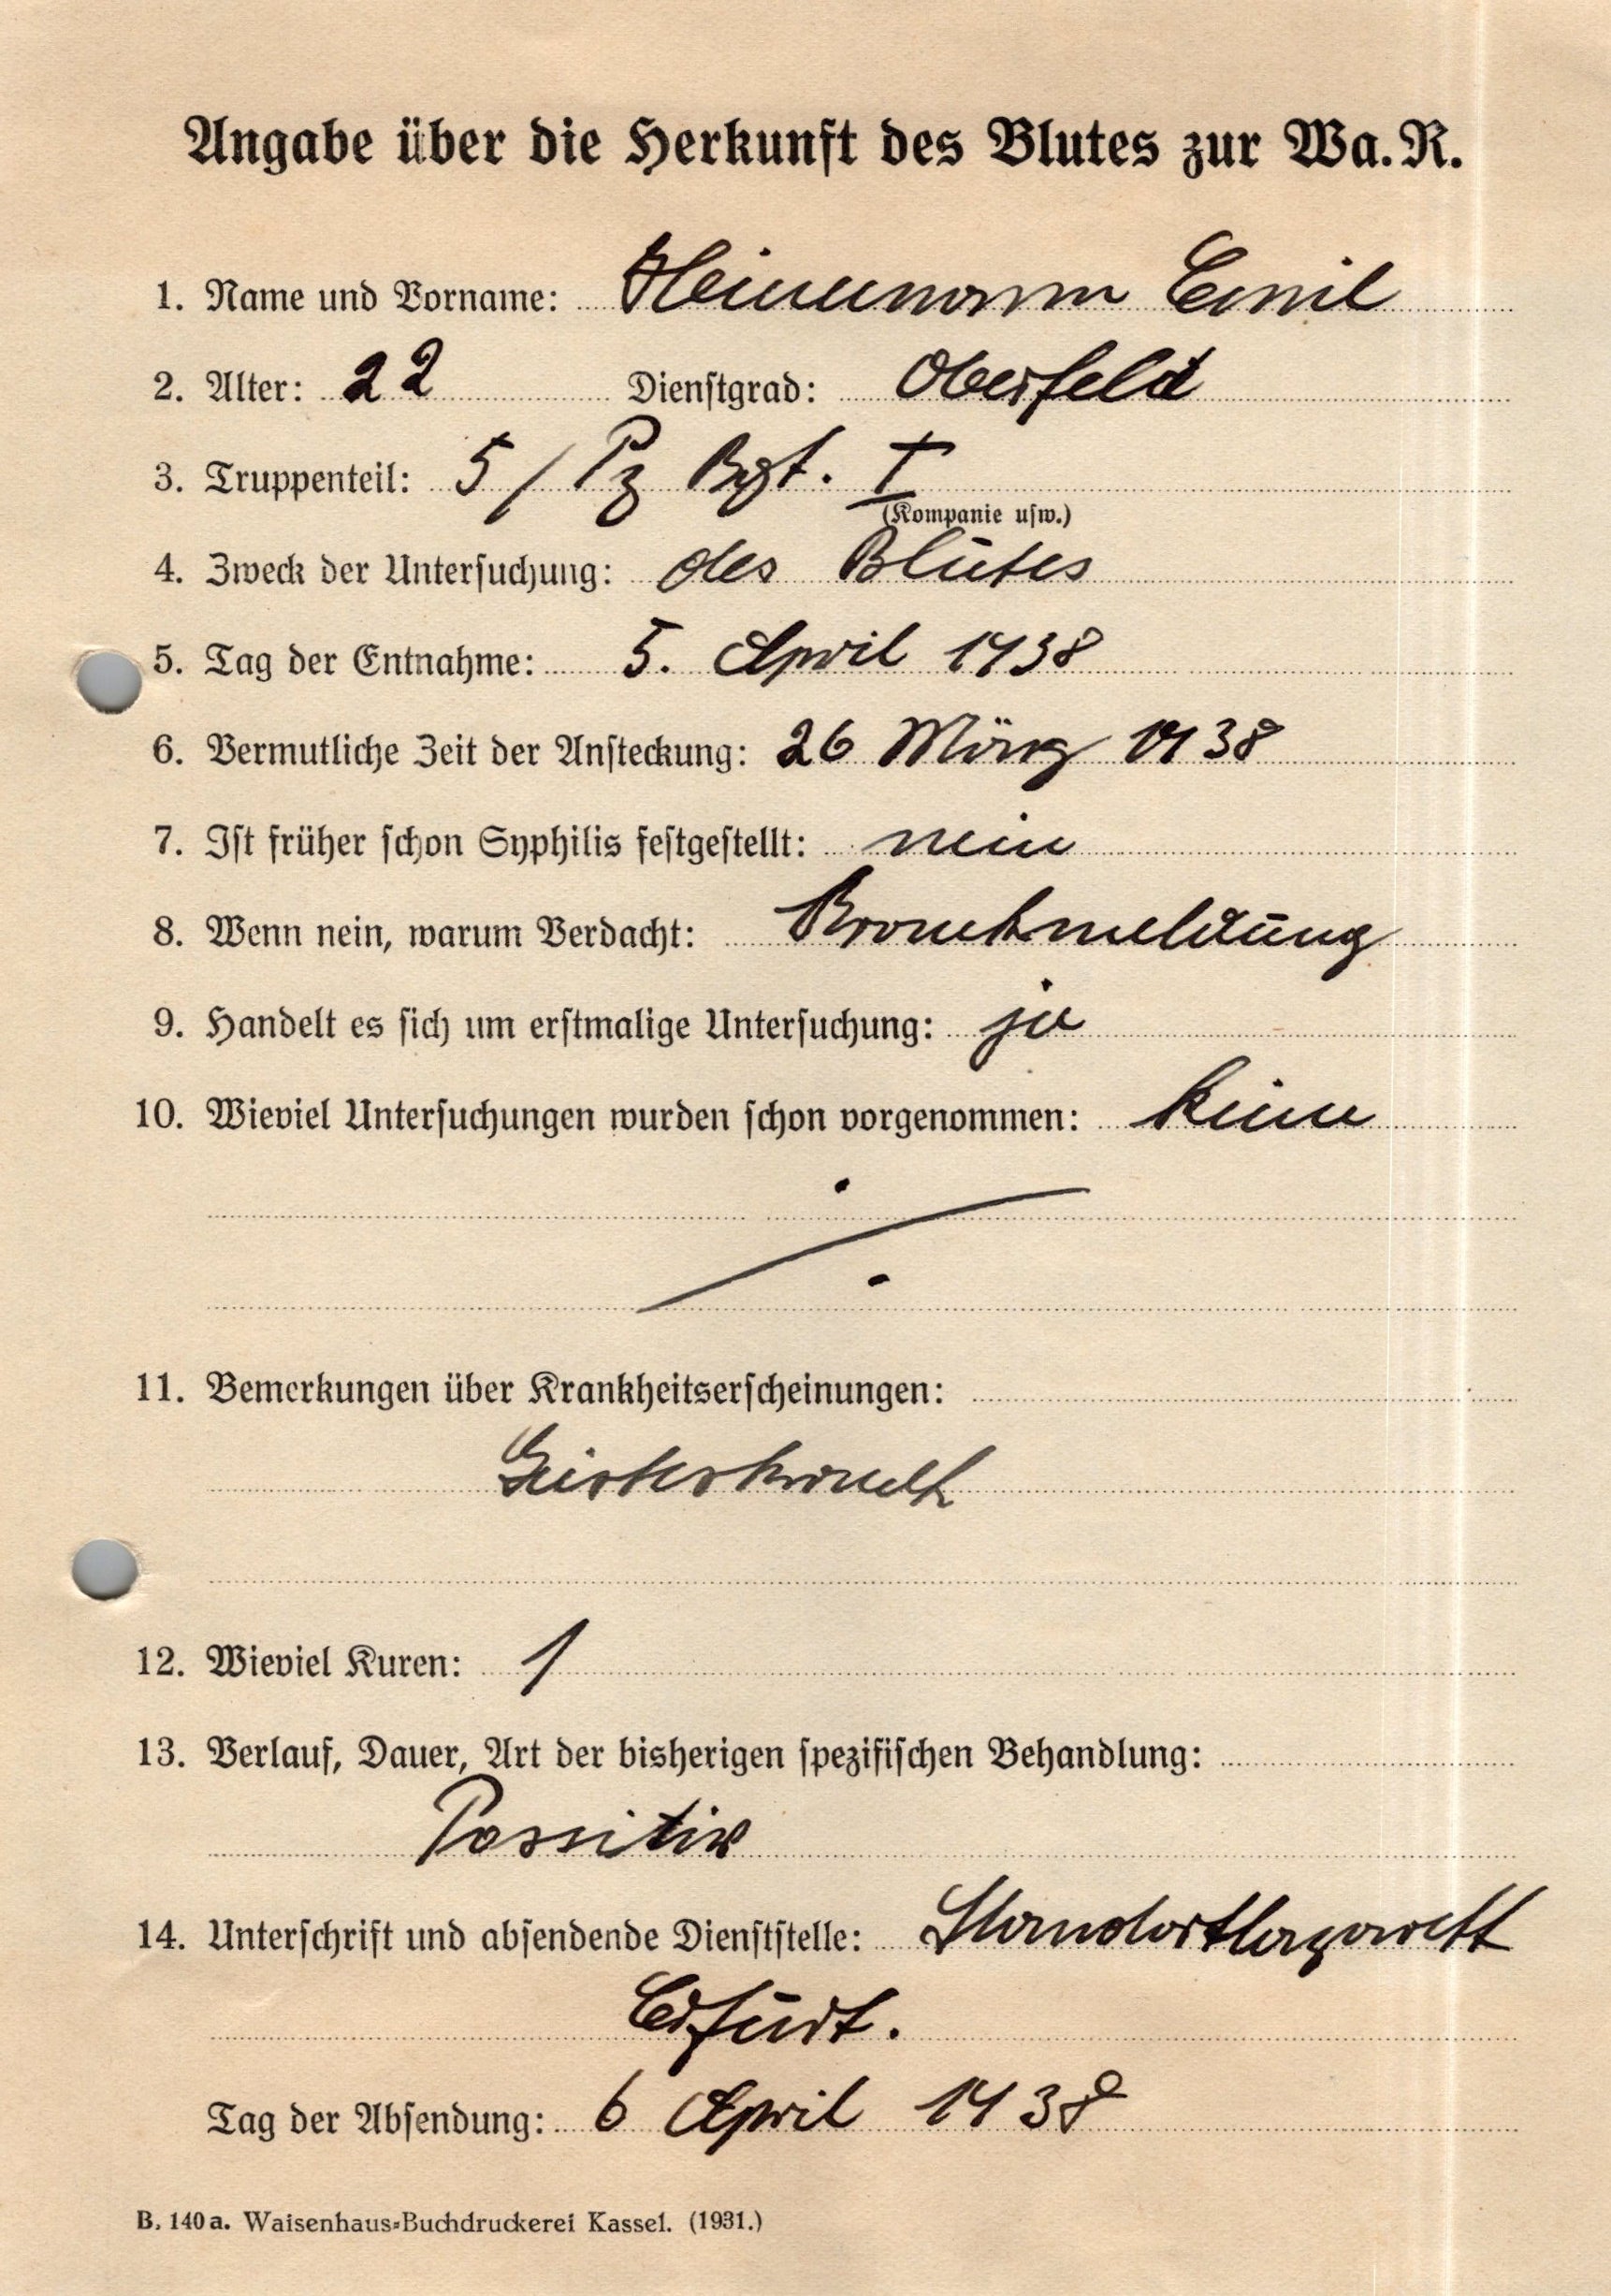 Angabe über die Herkunft des Blutes zur Wa.R.
1. Name und Vorname: Heinemann Emil
2. Alter: 22 Dienstgrad: Oberfeld
3. Truppenteil: 5 / Pz Rgt. I
(Kompanie usw.)
4. Zweck der Untersuchung: des Blutes
5. Tag der Entnahme: 5. April 1938
6. Vermutliche Zeit der Ansteckung: 26 März 1938
7. Ist früher schon Syphilis festgestellt: nein
8. Wenn nein, warum Verdacht: Krankmeldung
9. Handelt es sich um erstmalige Untersuchung: ja
10. Wieviel Untersuchungen wurden schon vorgenommen: keine
11. Bemerkungen über Krankheitserscheinungen:
12. Wieviel Kuren: 1
13. Verlauf, Dauer, Art der bisherigen spezifischen Behandlung:
Possitiv
14. Unterschrift und absendende Dienststelle: Standortlazarett
Erfurt.
Tag der Absendung: 6 April 1938
B. 140a. Waisenhaus=Buchdruckerei Kassel. (1931.)